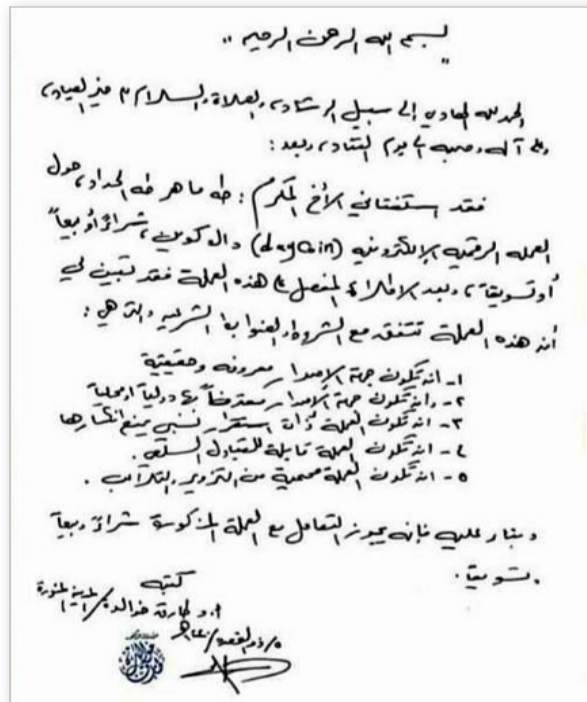 بسم الله الرحمن الرحيم
الحمد لله الهادي إلى سبيل الرشاد، والصلاة والسلام على خير العباد،
وعلى آله وصحبه إلى يوم التناد، وبعد:
فقد استفتاني الأخ المكرم: طه ماهر طه الحداد، حول
العملة الرقمية الإلكترونية (dagcoin) داك كوين، شراءً أو بيعاً
أو تسويقاً، وبعد الاطلاع المفصل على هذه العملة فقد تبين لي
أن هذه العملة تتفق مع الشروط والضوابط الشرعية والتي هي:
١- أن تكون جهة الإصدار معروفة وحقيقية
٢- وأن تكون جهة الإصدار معترفاً بها دولياً أو محلياً
٣- أن تكون العملة ذات استقرار نسبي يمنع انهيارها
٤- أن تكون العملة قابلة للتبادل السلعي.
٥- أن تكون العملة محمية من التزوير والتلاعب.
وبناء عليه فإنه يجوز التعامل مع العملة المذكورة شراءً وبيعاً
وتسويقاً.
كتبه
أ.د طارق خوالدة / المدينة المنورة
٥/ذو القعدة/